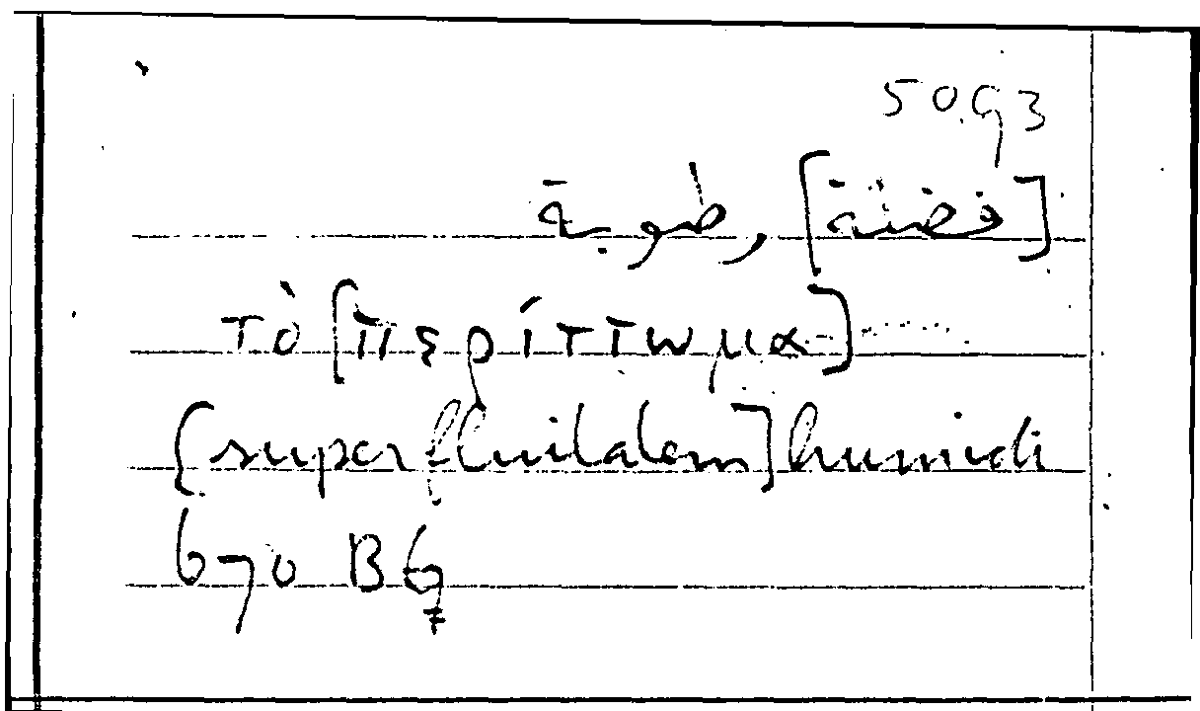 50,93
[فضلة] رطوبة
τὸ [περίττωμα]
[superfluitatem] humidi
670 B 9